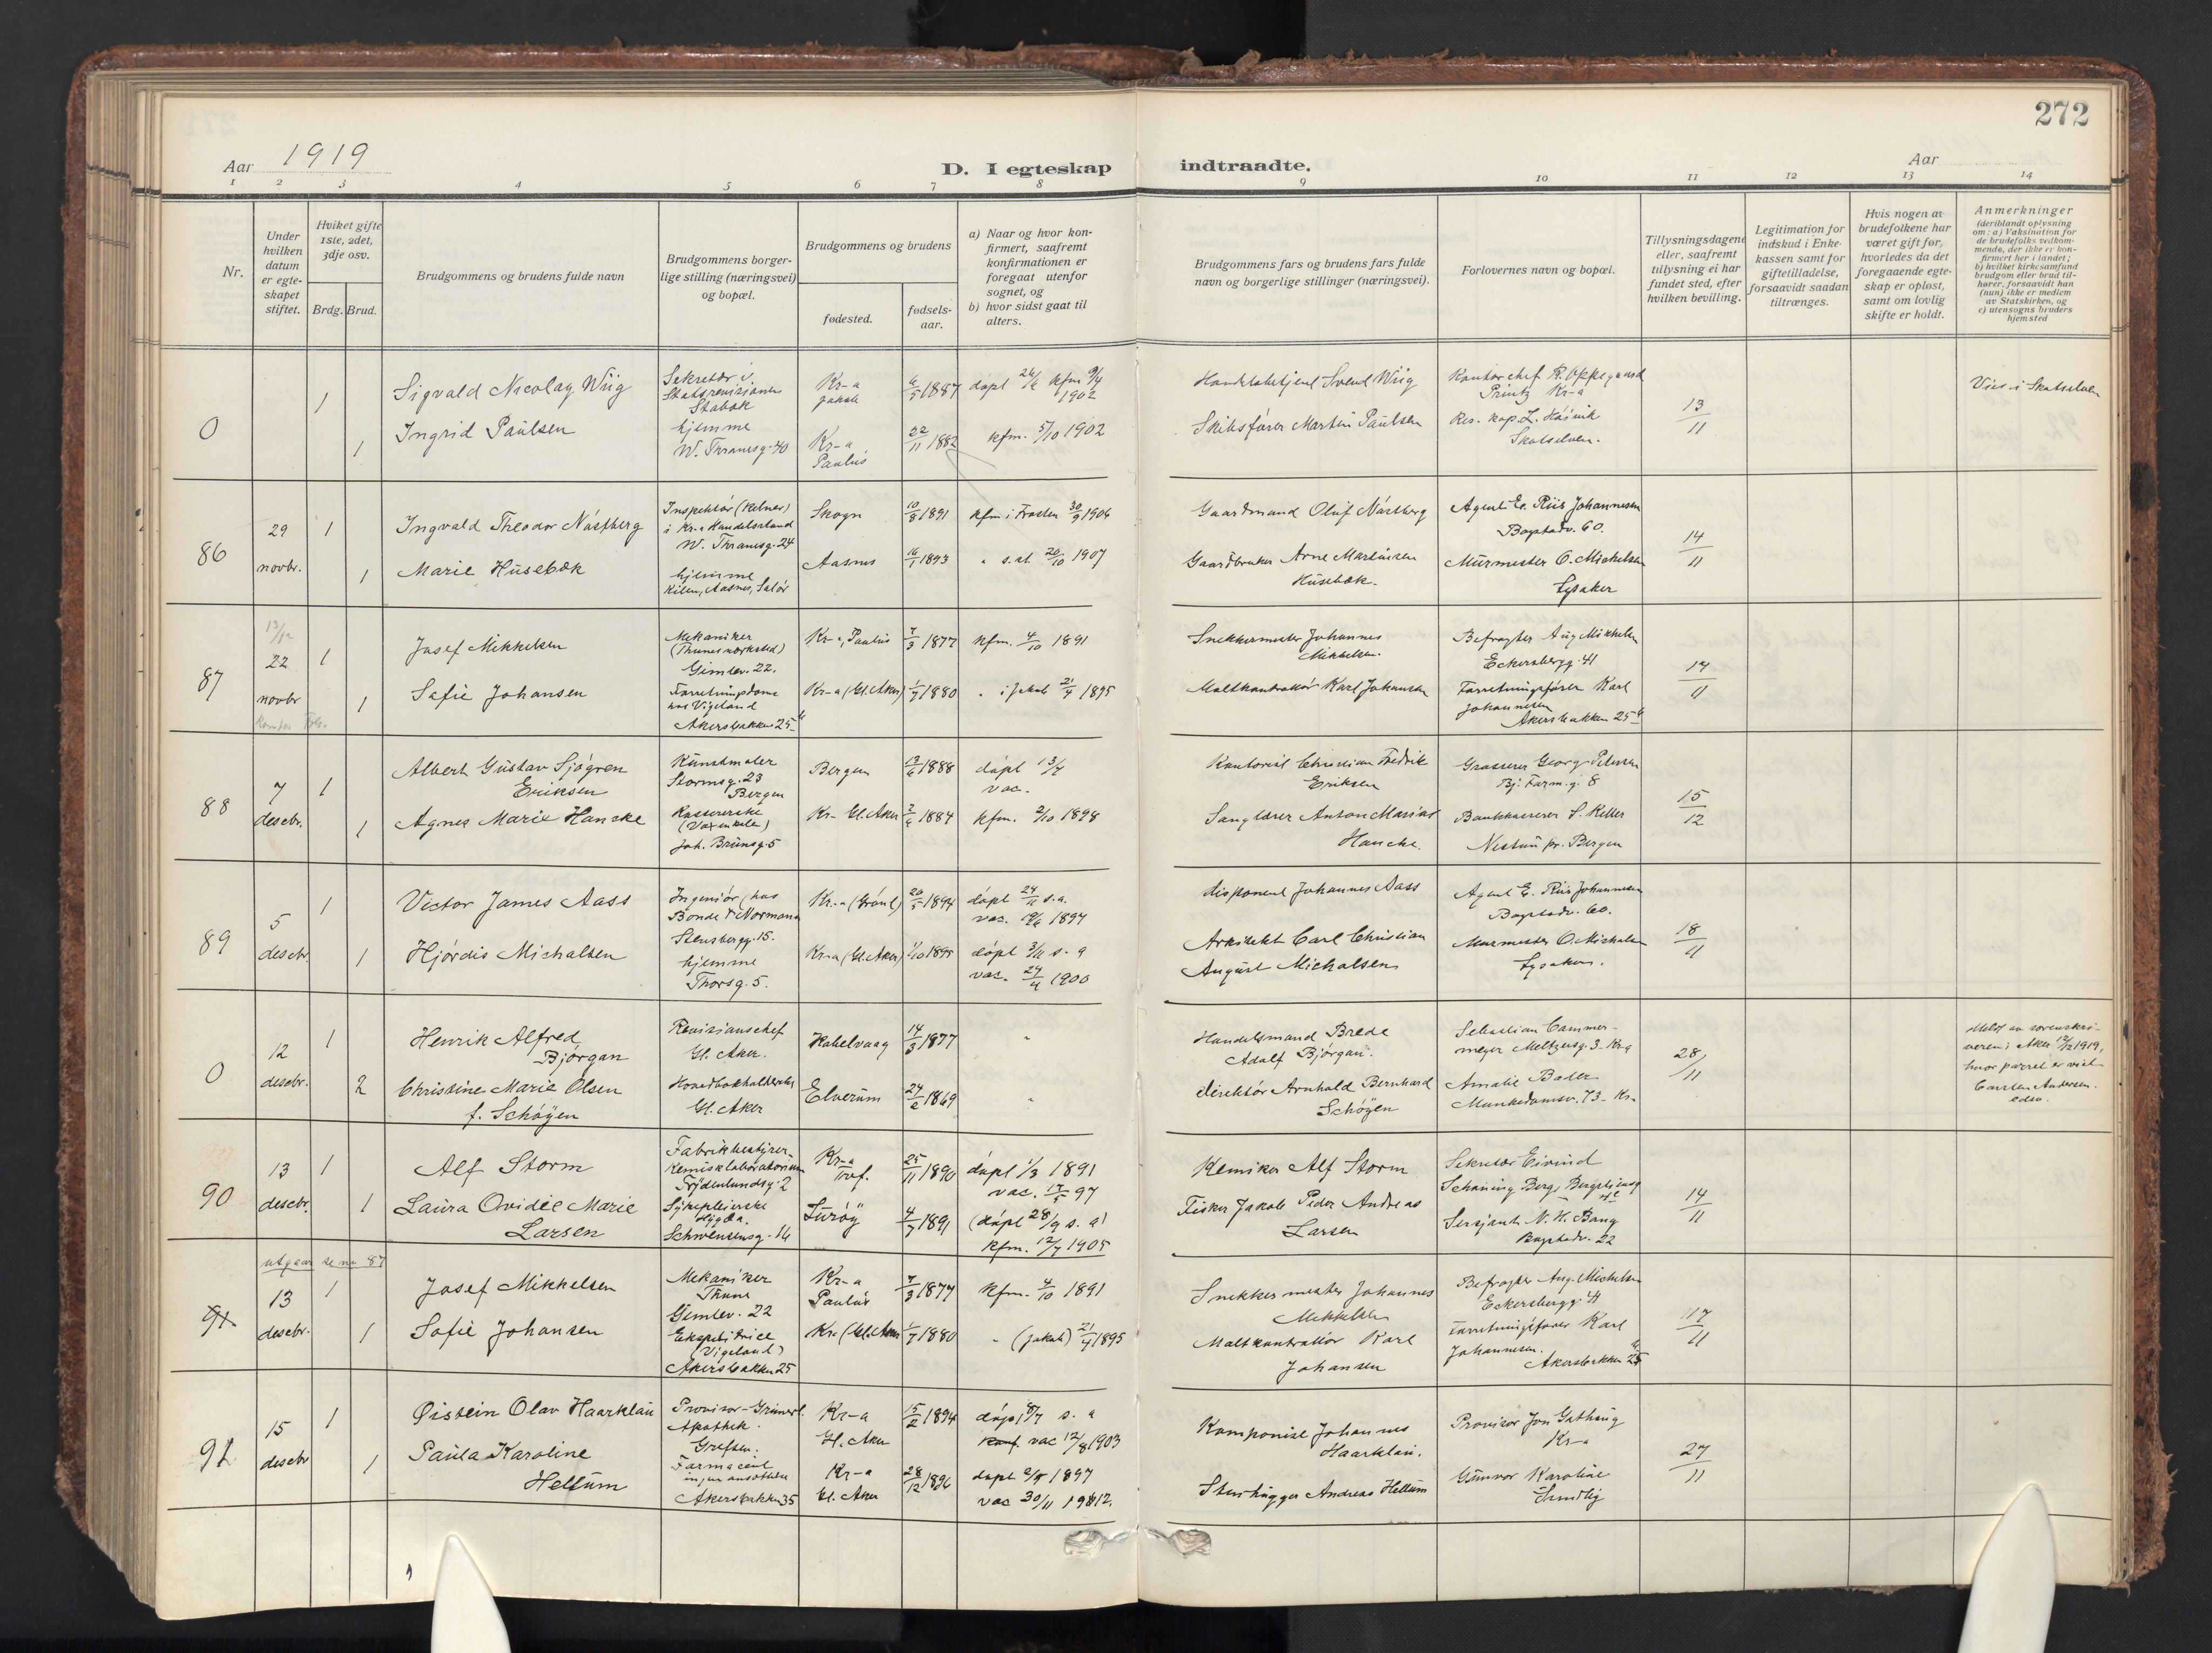 272
Aar 1919
D. I egteskap indtraadte.
Aar
1 2 3 4 5 6 7 8 9 10 11 12 13 14
Nr.
Under
hvilken
datum
er egte-
skapet
stiftet.
Hviket gifte
1ste, 2det,
3dje osv.
Brdg. Brud.
Brudgommens og brudens fulde navn
Brudgommens borger-
lige stilling (næringsvei)
og bopæl.
Brudgommens og brudens
fødested.
fødsels-
aar.
a) Naar og hvor kon-
firmert, saafremt
konfirmationen er
foregaat utenfor
sognet, og
b) hvor sidst gaat til
alters.
Brudgommens fars og brudens fars fulde
navn og borgerlige stillinger (næringsvei).
Forlovernes navn og bopæl.
Tillysningsdagene
eller, saafremt
tillysning ei har
fundet sted, efter
hvilken bevilling.
Legitimation for
indskud i Enke-
kassen samt for
giftetilladelse,
forsaavidt saadan
tiltrænges.
Hvis nogen av
brudefolkene har
været gift før,
hvorledes da det
foregaaende egte-
skap er opløst,
samt om lovlig
skifte er holdt.
Anmerkninger
(deriblandt oplysning
om: a) Vaksination for
de brudefolks vedkom-
mende, der ikke er kon-
firmert her i landet;
b) hvilket kirkesamfund
brudgom eller brud til-
hører, forsaavidt han
(hun) ikke er medlem
av Statskirken, og
c) utensogns bruders
hjemsted
0
1
Sigvald Nicolay Wiig
Sekretær i
Statsrevisionen
Stabæk
Kr-a
Jakob
6/5 1887
døpt 26/6 kfm 9/4
1902
Svend Wiig
Kontorchef R. Oppegaard
Printz Kr-a
13/11
Vies i Skotselven
1
Ingrid Paulsen
hjemme
W. Thranesg. 40
Kr-a
Paulus
22/11 1882
kfm. 5/10 1902
Skibsfører Martin Paulsen
Res. kap. L.
Skotselven.
86
29
novbr.
1
Ingvald Theodor Nøstberg
Inspektør (Kelner)
i Kr.a Handelsstand
W. Thranesg. 24
Skogn
10/8 1891
kfm i Frosten 30/9 1906
Gaardmand Oluf Nøstberg
Agent E. Riis Johannesen
Bogstadv. 60.
14/11
1
Marie Husebæk
hjemme
Kilen, Aasnes, Solør
Aasnes
16/1 1893
" s. st. 20/10 1907
Gaardbruker Arne Martinsen
Husebæk.
Murmester O. Michelsen
Lysaker
87
13/12
22
novbr
1
Josef Mikkelsen
Mekaniker
(Thunes værksted)
Gimlev. 22.
Kr-a, Paulus
7/3 1877
kfm. 4/10 1891
Snekkermester Johannes
Mikkelsen.
Befragter Aug Mikkelsen
Eckersbergg. 41
17/11
1
Sofie Johansen
Forretningsdame
hos Vigeland
Akersbakken 25 b
Kr-a (Gl. Aker)
1/7 1880
" i Jakob 21/4 1895
Maltkontrollør Karl Johansen
Forretningsfører Karl
Johannesen
Akersbakken 25 b
88
7
desebr.
1
Albert Gustav Sjøgren
Eriksen
Kunstmaler
Stormsg. 23
Bergen
Bergen
13/6 1888
døpt 13/7
vac.
Kontorist Christian Fredrik
Eriksen
Grosserer Georg Petersen
Bj. Farm. g. 8
15/12
1
Agnes Marie Hancke
Kassererske
Joh. Brunsg. 5
Kr- Gl. Aker
2/4 1884
kfm. 2/10 1898
Sanglærer Anton Marius
Hancke.
Bankkasserer S. Keller
Nestun pr. Bergen
89
5
desebr
1
Victor James Aass
Ingeniør, hos
Bonde & Normann
Stensbergg. 15.
Kr.-a (Grønl)
20/5 1894
døpt 24/11 s.a.
vac. 19/6 1897
disponent Johannes Aass
Agent E. Riis Johannesen
Bogstadv. 60.
18/11
1
Hjørdis Michalsen
hjemme
Thorsg. 5.
Kr-a (Gl. Aker)
1/10 1895
døpt 3/11 s. a
vac. 24/4 1900
Arkitekt Carl Christian
August Michalsen
Murmester O. Michalsen
Lysaker.
0
12
desebr.
1
Henrik Alfred
Bjørgan
Revisionschef
Gl. Aker.
Kabelvaag
14/3 1877
"
Handelsmand Brede
Adolf Bjørgan.
Sebastian Cammer-
meyer Meltzersg. 3. Kra
28/11
Meldt av sorenskri-
veren i Aker 12/12 1919,
hvor parret er viet
Carsten Andersen.
edsv.
2
Christine Marie Olsen
f. Schøyen
Hovedbokholderske
Gl. Aker
Elverum
24/2 1869
"
direktør Arnhold Bernhard
Schøyen
Amalie Bader
Munkedamsv. 73 - Kr.
90
13
desebr.
1
Alf Storm
Fabrikbestyrer
Kemisk laboratorium
Frydenlundsg. 2
Kr-a
Tref.
25/11 1890
døpt 1/3 1891
vac. 17/5 97
Kemiker Alf Storm
Sekretær Eivind
Schøning Berg,
14/11
1
Laura Ovidie Marie
Larsen
Sykepleierske
Hygea.
Schwensensg. 14
Lurøy
4/7 1891
(døpt 28/9 s. a)
kfm. 12/7 1905
Fisker Jakob Peder Andreas
Larsen
Sersjant N. H. Bang
Bogstadv. 22
utgaar se nr 87
91
13
desebr.
1
Josef Mikkelsen
Mekaniker
Thune
Gimlev. 22
Kr-a
Paulus
7/3 1877
kfm. 4/10 1891
Snekkermester Johannes
Mikkelsen
Befragter Aug. Mickelsen
Eckersbergg. 41
17/11
1
Sofie Johansen
Ekspeditrice
(Vigeland)
Akersbakken 25
Kr. (Gl. Aker
1/7 1880
" (Jakob) 21/4 1895
Maltkontrollør Karl
Johansen
Forretningsfører Karl
Johannesen.
Akersbakken 25 b
91
15
desebr
1
Øistein Olav Haarklau
Provisor - Grünerl.
Apothek.
Grefsen.
Kr-a
Gl. Aker
15/2 1894
døpt 8/7 s. a
konf. vac 12/8 1903
Komponist Johannes
Haarklau.
Provisor Jon Gathaug
Kr-a
27/11
1
Paula Karoline
Hellum
Farmaceut
Akersbakken 35
Kr-a
Gl. Aker
28/12 1896
døpt 2/5 1897
vac 30/11 1912.
Stenhugger Andreas Hellum
Gunvor Karoline